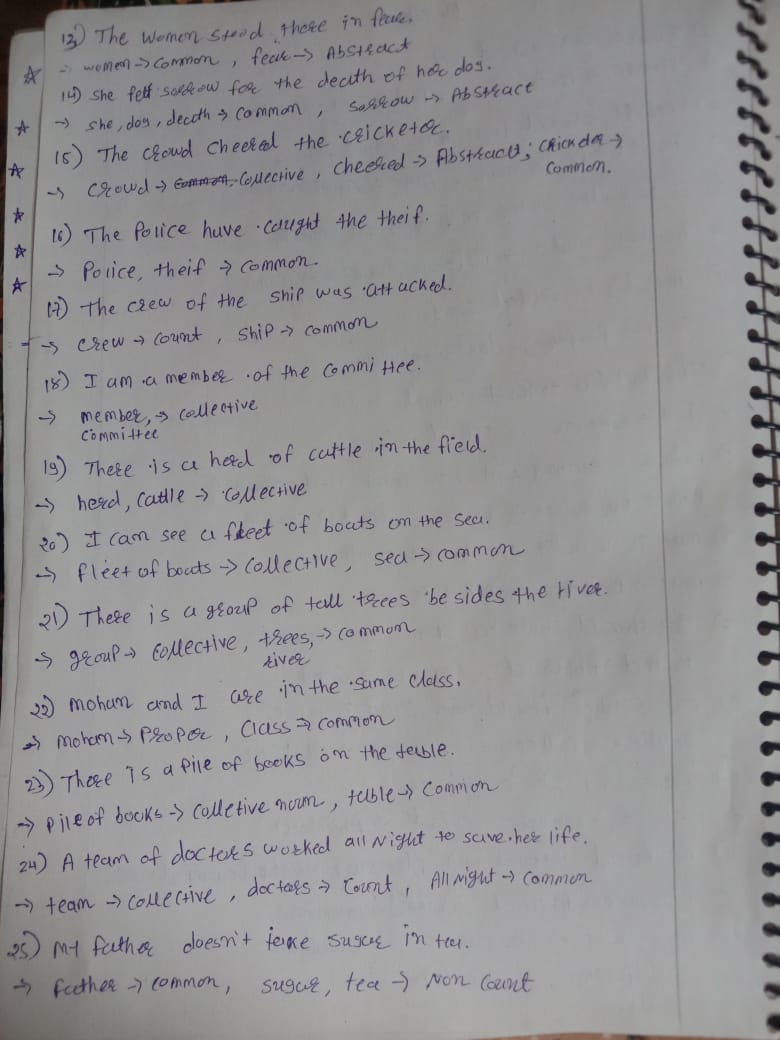 13) The women stood there in fear.
→ women → common, fear → Abstract
14) she felt sorrow for the death of her dog.
→ she, dog, death → common, sorrow → Abstract
15) The crowd cheered the cricketer.
→ crowd → common, collective, cheered → Abstract; cricketer →
common.
16) The Police have caught the theif.
→ Police, theif → common.
17) The crew of the ship was attacked.
→ crew → count, ship → common
18) I am a member of the committee.
→ member, → collective
committee
19) There is a herd of cattle in the field.
→ herd, cattle → collective
20) I can see a fleet of boats on the sea.
→ fleet of boats → collective, sea → common
21) There is a group of tall trees besides the river.
→ group → collective, trees, → common
river
22) Mohan and I are in the same class.
→ Mohan → Proper, Class → common
23) There is a pile of books on the table.
→ pile of books → colletive noun, table → common
24) A team of doctors worked all night to save her life.
→ team → collective, doctors → count, All night → common
25) My father doesn't take sugar in tea.
→ father → common, sugar, tea → Non count